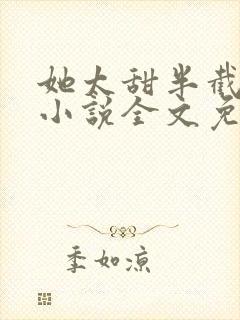 她太甜半截
小説全文免
季如凉